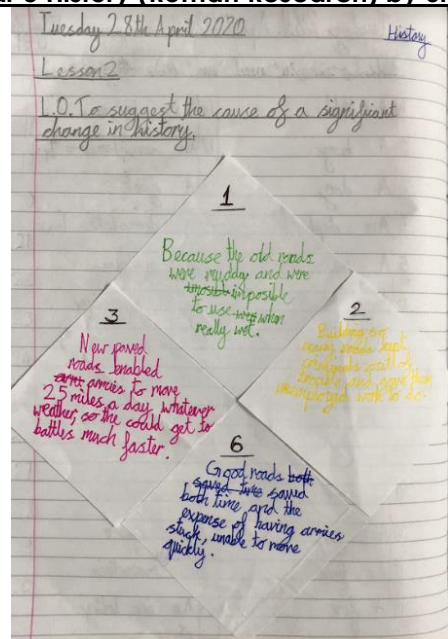 Tuesday 28th April 2020
History
Lesson 2
L.O. To suggest the cause of a significant
change in history.
1
Because the old roads
were muddy and were
imposible
to use when
really wet.
2
Building so
many roads kept
part of
empire and gave the
unemployed work to do.
3
New paved
roads enabled
armies to move
25 miles a day whatever
weather, so the could get to
battles much faster.
6
Good roads both
saved time saved
both time, and the
expense of having armies
stuck, unable to move
quickly.